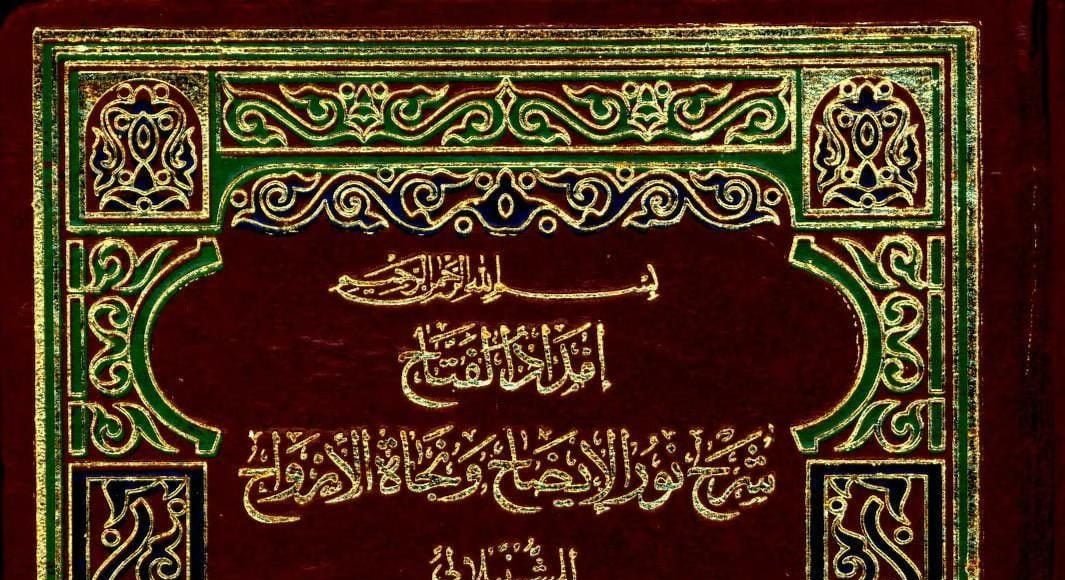 بسم الله الرحمن الرحيم
إمداد الفتاح
شرح نور الإيضاح ونجاة الأرواح